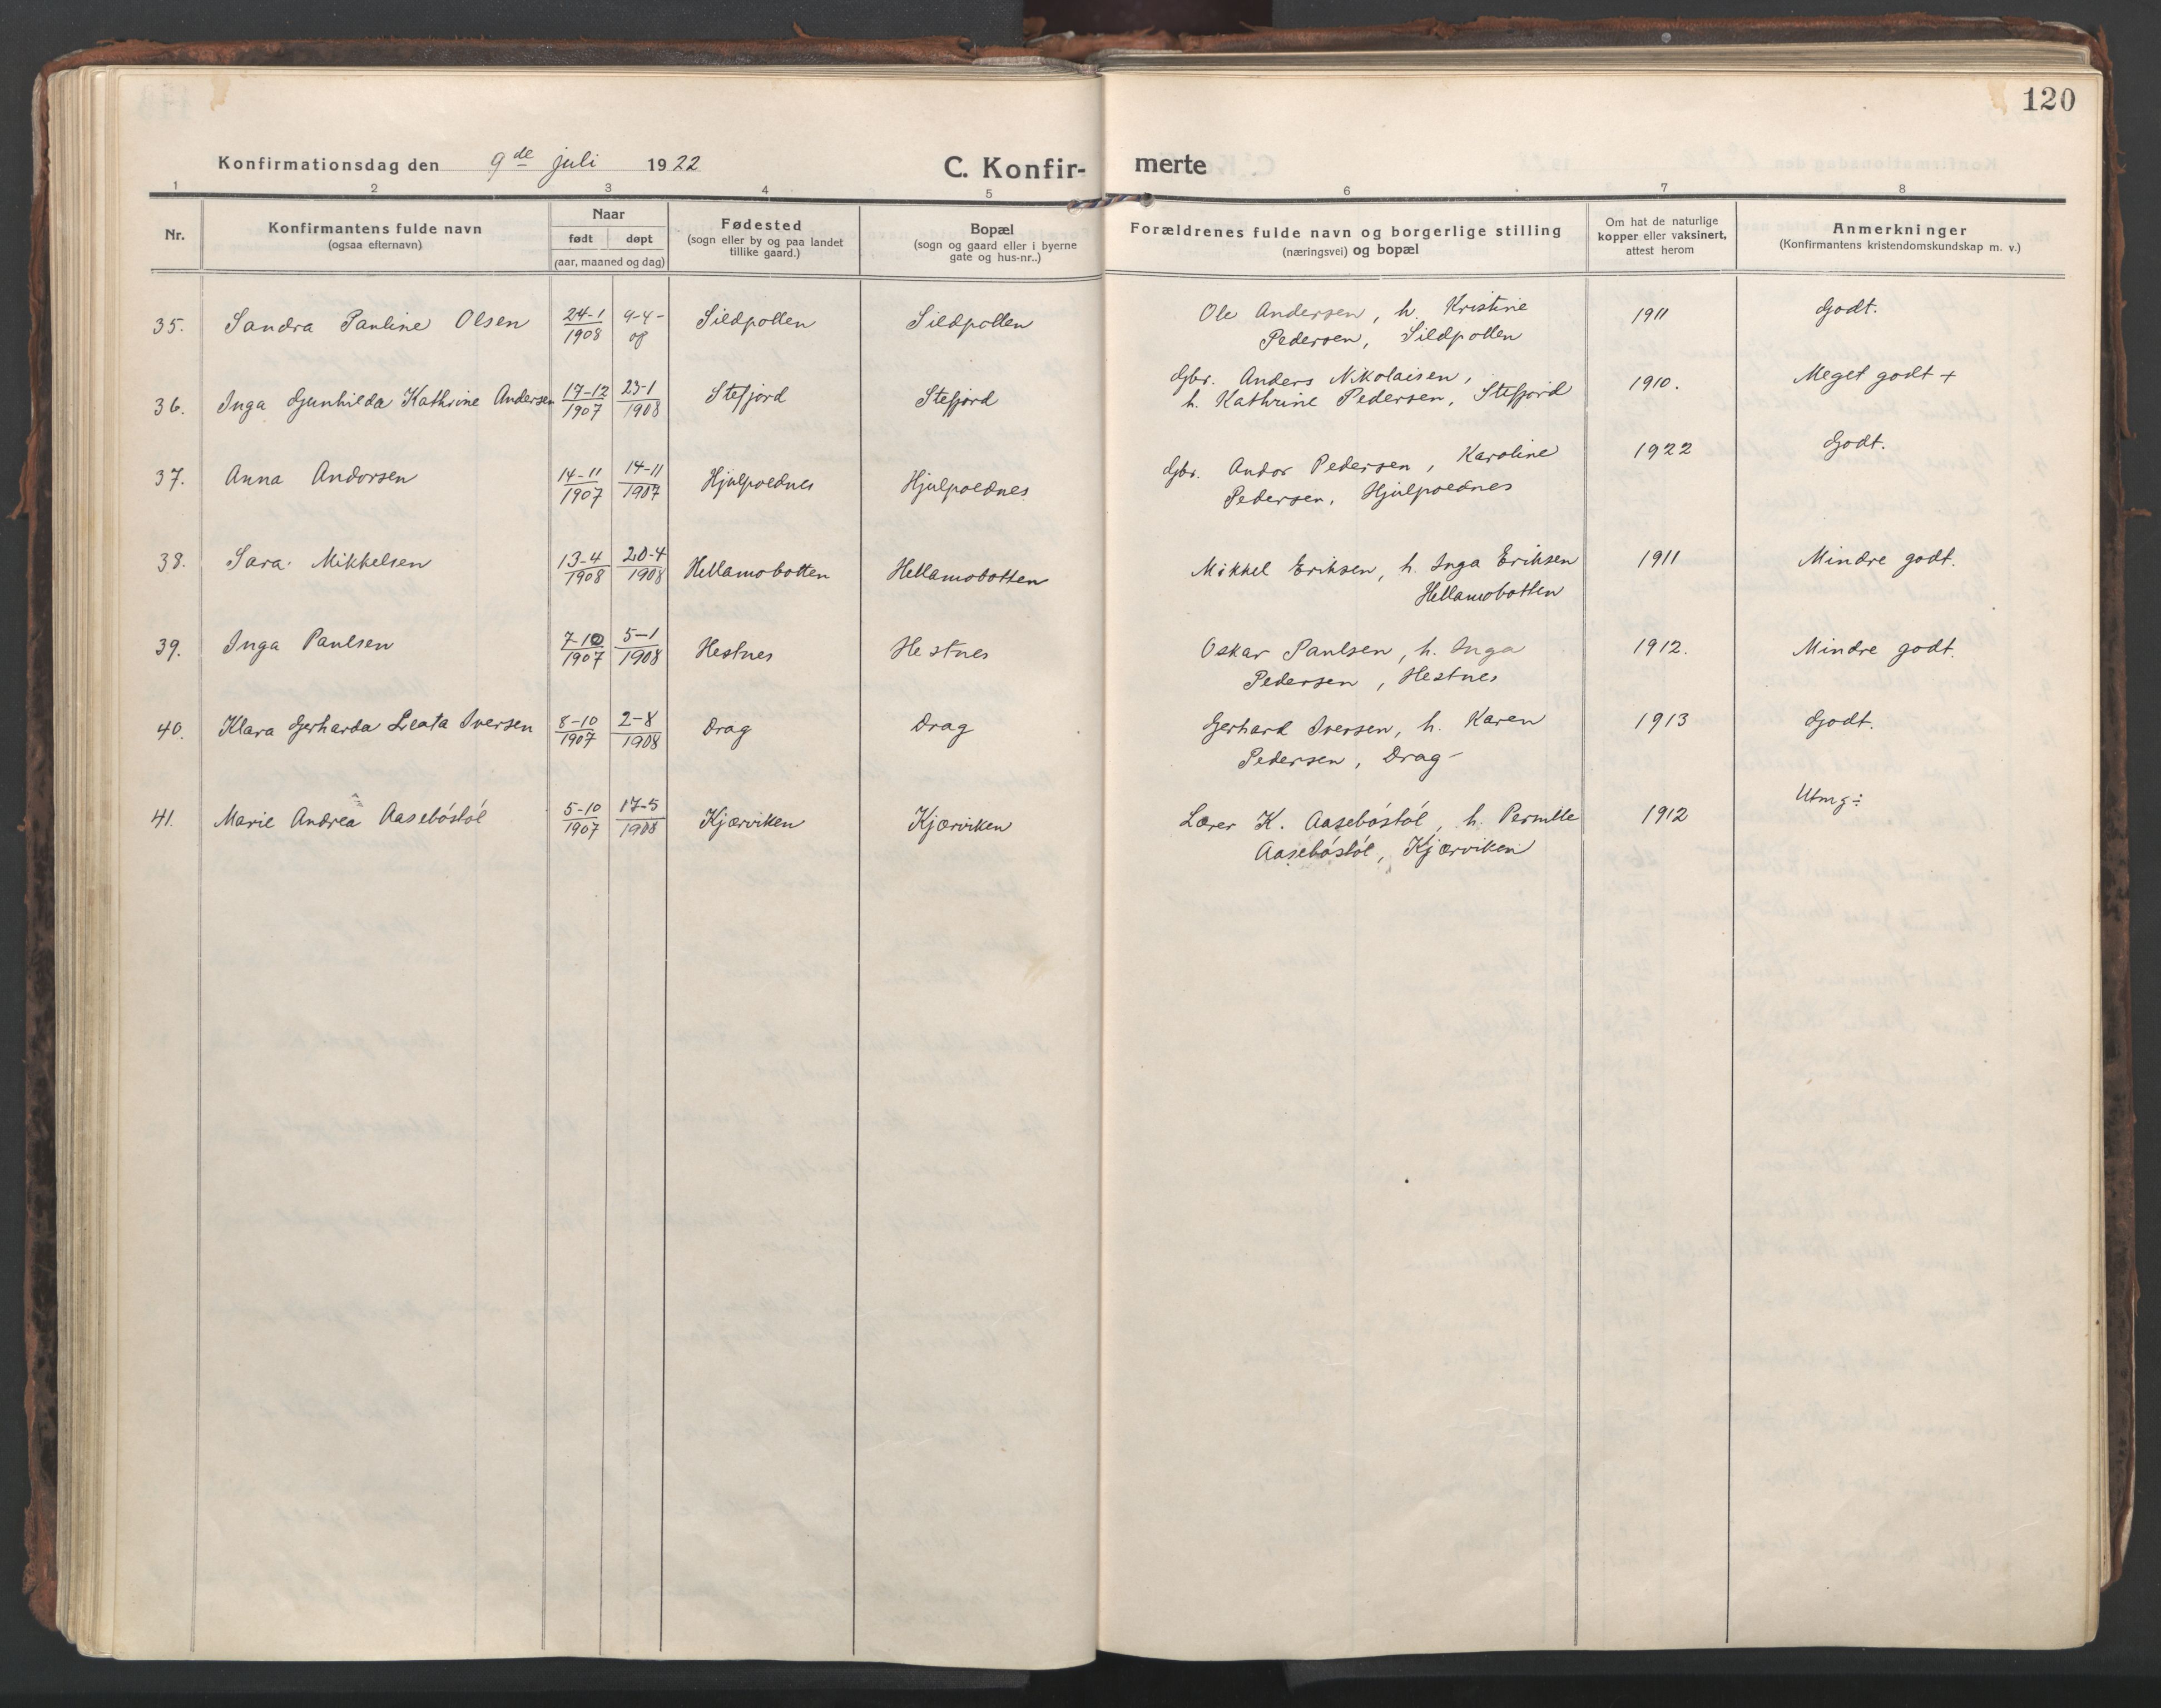 120
Konfirmationsdag den 9de juli 1922
C. Konfirmerte
1 2 3 4 5 6 7 8
Nr.
Konfirmantens fulde navn
(ogsaa efternavn)
Naar
født døpt
(aar, maaned og dag)
Fødested
(sogn eller by og paa landet
tillike gaard.)
Bopæl
(sogn og gaard eller i byerne
gate og hus-nr..)
Forældrenes fulde navn og borgerlige stilling
(næringsvei) og bopæl
Om hat de naturlige
kopper eller vaksinert,
attest herom
Anmerkninger
(Konfirmantens kristendomskundskap m. v.)
35. Sandra Pauline Olsen 24-1 1908 9-4- 08 Sildpollen Sildpollen Ole Andersen, h. Kristine 1911 Godt.
Pedersen, Sildpollen
36. Inga Gunhilda Kathrine Andersen 17-12 1907 23-1 1908 Stefjord Stefjord Gbr. Anders Nikolaisen, 1910. Meget godt +
h. Kathrine Pedersen, Stefjord
37. Anna Andorsen 14-11 1907 14-11 1907 Hjulpoednes Hjulpoednes Gbr. Andor Pedersen, Karoline 1922 Godt.
Pedersen, Hjulpoednes
38. Sara Mikkelsen 13-4 1908 20-4 1908 Hellamobotten Hellamobotten Mikkel Eriksen, h. Inga Eriksen 1911 Mindre godt.
Hellamobotten
39. Inga Paulsen 7-10 1907 5-1 1908 Hestnes Hestnes Oskar Paulsen, h. Inga 1912. Mindre godt.
Pedersen, Hestnes
40. Klara Gerharda Leata Iversen 8-10 1907 2-8 1908 Drag Drag Gerhard Iversen, h. Karen 1913 Godt.
Pedersen, Drag-
41. Marie Andrea Aasebóstól 5-10 1907 17-5 1908 Kjærviken Kjærviken Lærer K. Aasebóstól, h. Pernille 1912 Utmg ÷
Aasebóstól, Kjærviken